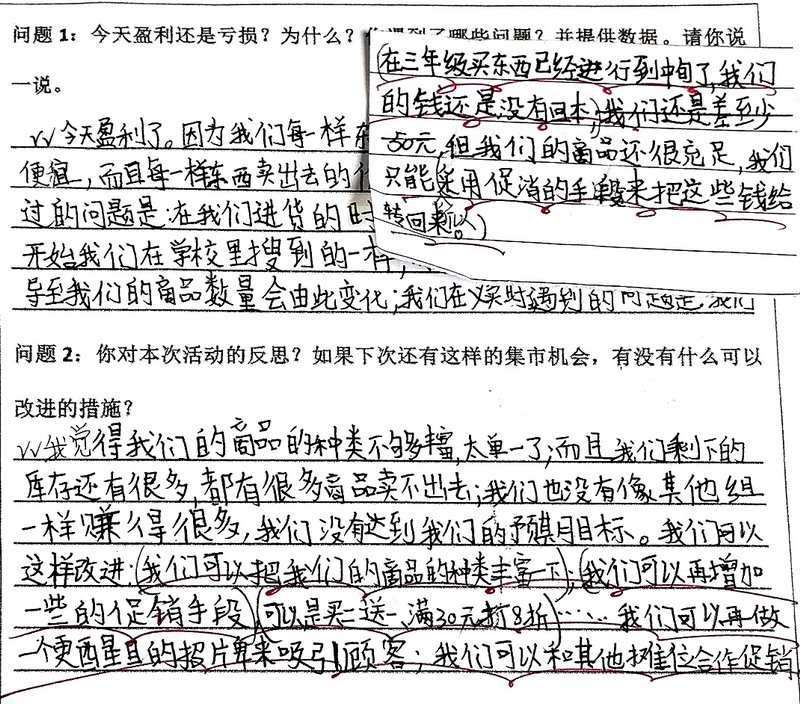 问题 1：今天盈利还是亏损？为什么？
一说。
今天盈利了。因为我们每一样东
便宜，而且每一样东西卖出去的
过的问题是：在我们进货的时
开始我们在学校里搜到的一样，
导至我们的商品数量会由此变化；我们在买时遇到的问题是，我们
(在三年级买东西已经进行到中旬了，我们
的钱还是没有回本)，我们还是差至少
50元，但我们的商品还很充足，我们
只能采用促消的手段来把这些钱给
转回来。)
问题 2：你对本次活动的反思？如果下次还有这样的集市机会，有没有什么可以
改进的措施？
我觉得我们的商品的种类不够多丰富，太单一了，而且我们剩下的
库存还有很多，都有很多商品卖不出去；我们也没有像其他组
一样赚得很多，我们没有达到我们的预期目标。我们可以
这样改进：(我们可以把我们的商品的种类丰富一下)；(我们可以再增加
一些的促销手段)(可以是买一送一，满30元打8折)……我们可以再做
一个更醒目的招片牌来吸引顾客；我们可以和其他摊位合作促销